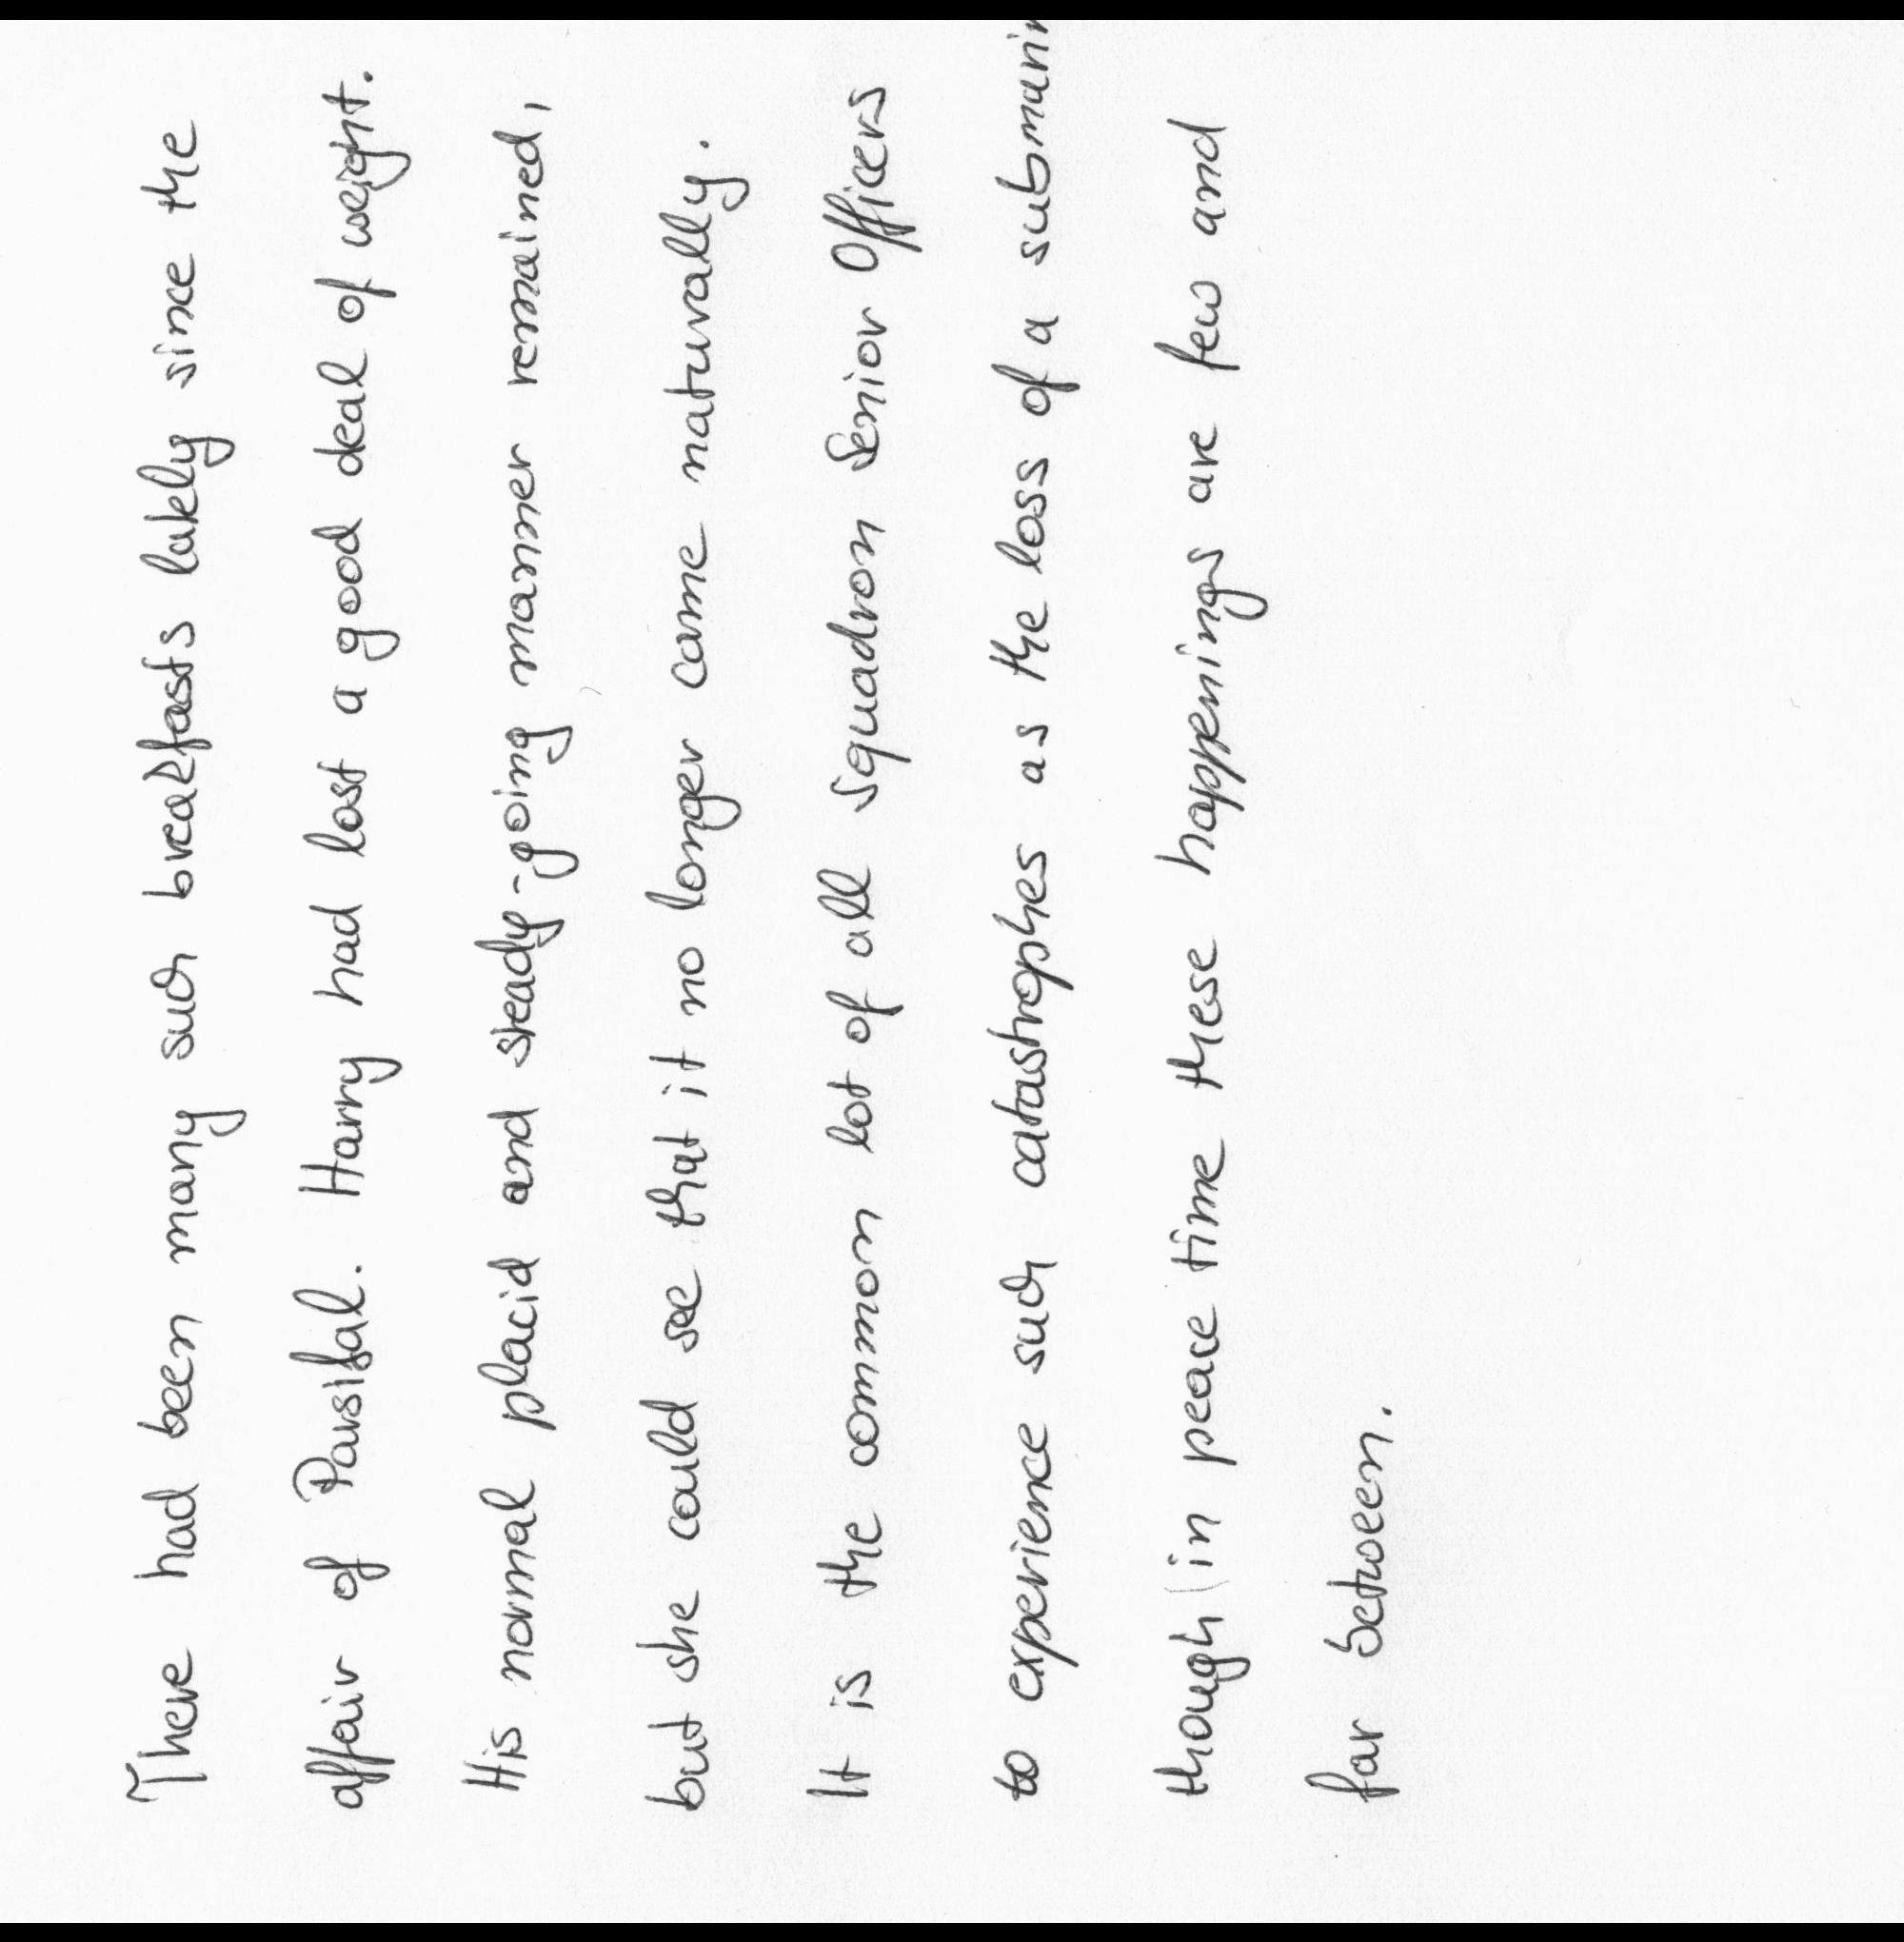 There had been many such breakfasts lately since the
affair of Parsifal. Harry had lost a good deal of weight.
His normal placid and steady-going manner remained,
but she could see that it no longer came naturally.
It is the common lot of all Squadron Senior Officers
to experience such catastrophes as the loss of a submarin
though (in peace time these happenings are few and
far between.